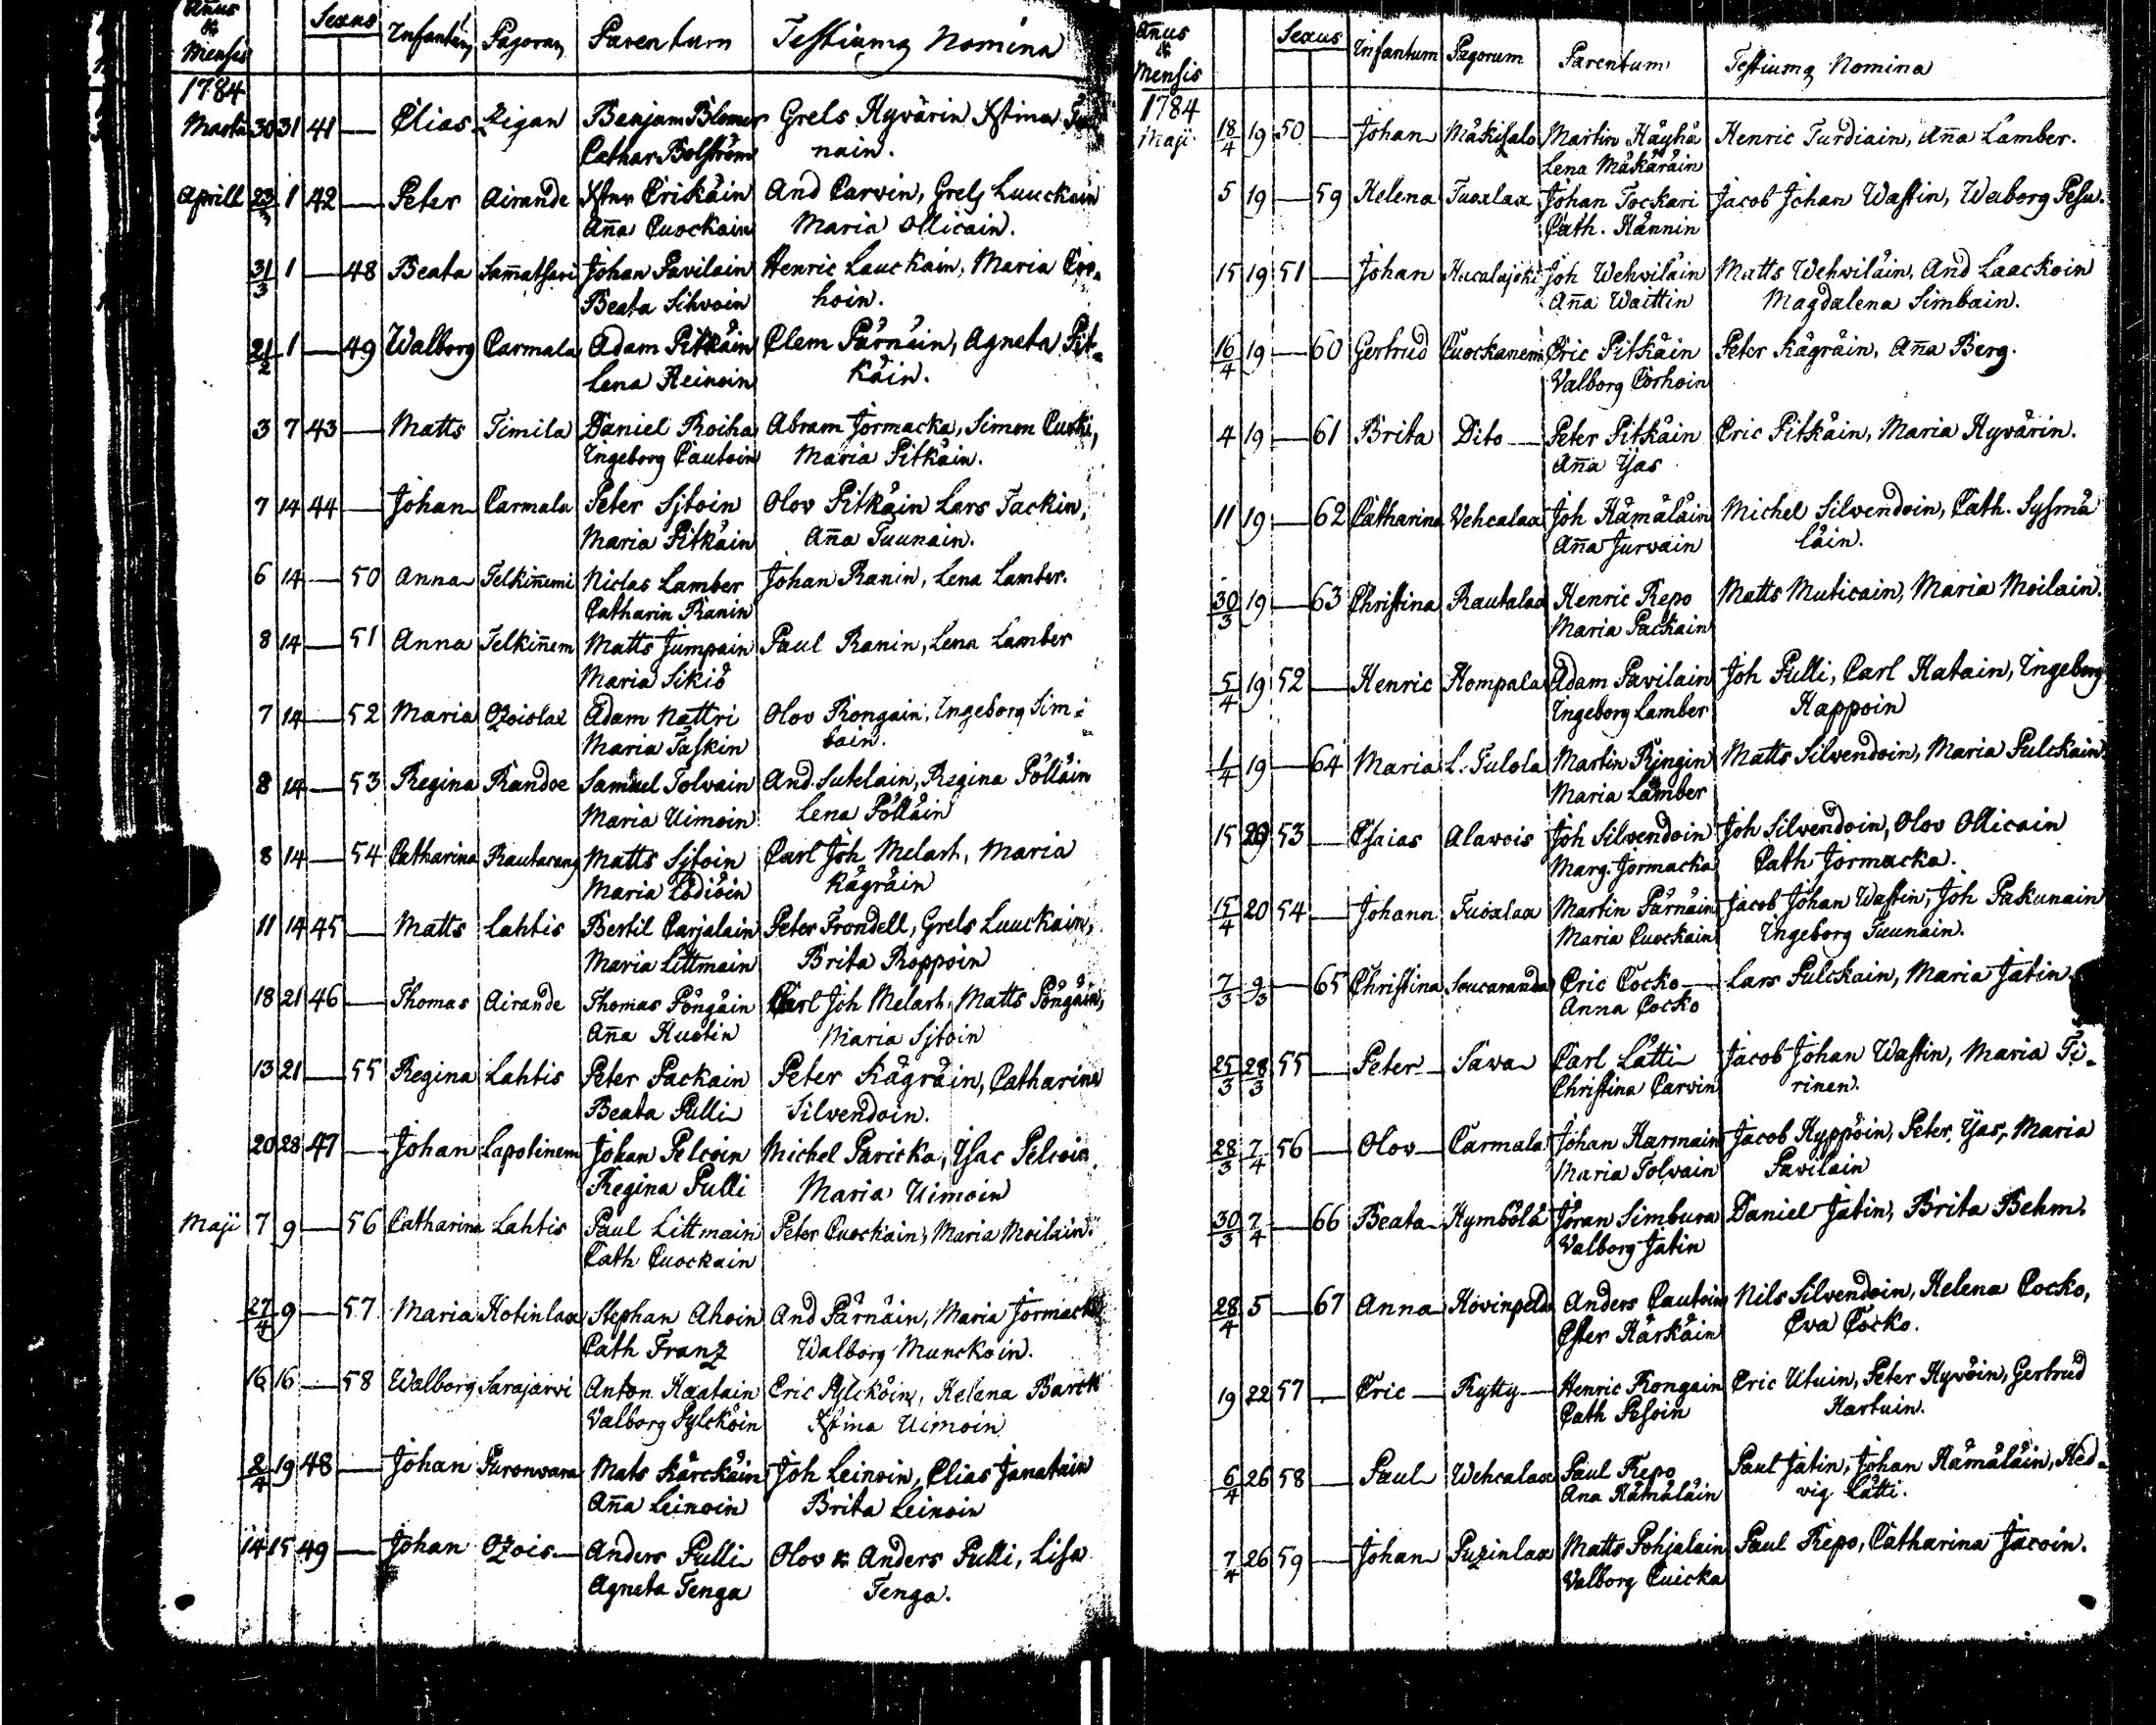 Añus & Mensis Sexus Infantum Pagorum Parentum Testiumq Nomina
1784
Martii 30 31 41 — Elias Zigan Benjam Blomer Grels Hyvärin Xstina
Cathar Bolström nain.
Aprill 23/3 1 42 — Peter Airande Xstnr Erikäin And Carvin, Grels Luuckain
Aña Cuockain Maria Ollicain.
31/3 1 — 48 Beata Sam̃atsari Johan Pavilain Henric Lauckain, Maria Cor-
Beata Sihvoin hoin.
21/2 1 — 49 Walborg Carmala Adam Pitkäin Clem Pärnäin, Agneta Pit-
Lena Heinoin käin.
3 7 43 — Matts Timila Daniel Roiha Abram Jormacka, Simon Cuoki,
Ingeborg Cautoin Maria Pitkäin.
7 14 44 — Johan Carmala Peter Sjtoin Olov Pitkäin Lars Tackin,
Maria Pitkäin Aña Tuunain.
6 14 — 50 Anna Telkiñemi Niclas Lamber Johan Ranin, Lena Lamber.
Catharin Ranin
8 14 — 51 Anna Telkiñem Matts Jumpain Paul Ranin, Lena Lamber
Maria Sikiö
7 14 — 52 Maria Ozoislax Adam Nattri Olov Rongain, Ingeborg Sim-
Maria Taskin bain.
8 14 — 53 Regina Randoe Samuel Tolvain And Sutelain, Regina Pölläin
Maria Uimoin Lena Pölläin
8 14 — 54 Catharina Rautacang Matts Sjtoin Carl Joh Melart, Maria
Maria Lödiöin Kägräin
11 14 45 — Matts Lahtis Bertil Carjalain Peter Frondell, Grels Luuckain,
Maria Littmain Brita Roppoin
18 21 46 — Thomas Airande Thomas Pöngäin Carl Joh Melart, Matts Pöngäin,
Aña Hustin Maria Sjtoin
13 21 — 55 Regina Lahtis Peter Packain Peter Kägräin, Catharina
Beata Pulli Silvendoin.
20 28 47 — Johan Lapotinem Johan Pelcoin Michel Paricka, Isac Pelcoin
Regina Pulli Maria Uimoin
Maji 7 9 — 56 Catharina Lahtis Paul Littmain Peter Cuockain, Maria Moilain.
Cath Cuockain
27/4 9 — 57 Maria Hotinlax Stephan Ahoin And Pärnäin, Maria Jormacka
Cath Franz Walborg Munckoin.
16 16 — 58 Walborg Sarajärvi Anton Haatain Eric Pylcköin, Helena Barck
Valborg Pylcköin Xstina Uimoin
2/4 19 48 — Johan Puronvara Mats Kärckäin Joh Leinoin, Elias Janatuin
Aña Leinoin Brita Leinoin
14 15 49 — Johan Ozois — Anders Pulli Olov & Anders Pulli, Lisa
Agneta Tenga Tenga.
Añus & Mensis Sexus Infantum Pagorum Parentum Testiumq Nomina
1784
Maji 18/4 19 50 — Johan Mäkisalo Martin Häyhä Henric Turdiain, Aña Lamber.
Lena Mäkäräin
5 19 — 59 Helena Tuoxlax Johan Tockari Jacob Johan Wastin, Waborg Pesu.
Cath. Hännin
15 19 51 — Johan Hucalajoki Joh Wehviläin Matts Wehviläin, And Laackoin
Aña Waittin Magdalena Simbain.
16/4 19 — 60 Gertrud Cuockanem Eric Pitkäin Peter Kägräin, Aña Berg.
Valborg Corhoin
4 19 — 61 Brita Dito — Peter Pitkäin Eric Pitkäin, Maria Hyvärin.
Aña Yas
11 19 — 62 Catharina Vehcalax Joh Hämäläin Michel Silvendoin, Cath. Sysmä
Aña Jurvain läin.
30/3 19 — 63 Christina Rautalax Henric Repo Matts Muticain, Maria Moilain.
Maria Packain
5/4 19 52 — Henric Hompala Adam Pavilain Joh Pulli, Carl Hatain, Ingeborg
Ingeborg Lamber Happoin
1/4 19 — 64 Maria L. Tulola Martin Ringin Matts Silvendoin, Maria Pulckain
Maria Lamber
15 20 53 — Esaias Alavois Joh Silvendoin Joh Silvendoin, Olov Ollicain
Marg. Jormacka Cath Jormacka.
15/4 20 54 — Johann Tuoxlax Martin Pärnäin Jacob Johan Wastin, Joh Pakunain
Maria Cuockain Ingeborg Tuunain.
7/3 9/3 — 65 Christina Soucaranda Eric Cocko — Lars Pulckain, Maria Jatin.
Anna Cocko
25/3 28/3 55 — Peter Sava Carl Lätti Jacob Johan Wastin, Maria Ti-
Christina Carvin rinen.
28/3 7/4 56 — Olov Carmala Johan Harmain Jacob Hyppöin, Peter Yas, Maria
Maria Tolvain Pavilain
30/3 7/4 — 66 Beata Hymbölä Jöran Simbura Daniel Jatin, Brita Behm.
Valborg Jatin
28/4 5 — 67 Anna Hovinpelda Anders Cautoin Nils Silvendoin, Helena Cocko,
Ester Härkäin Eva Cocko.
19 22 57 — Eric — Rytty — Henric Rongain Eric Utuin, Peter Hyvöin, Gertrud
Cath Pesoin Hartuin.
6/4 26 58 — Paul Wehcalax Paul Repo Paul Jatin, Johan Hämäläin, Hed-
Ana Hämäläin vig Lätti.
7/4 26 59 — Johan Puzinlax Matts Pohjalain Paul Repo, Catharina Jacoin.
Valborg Cuicka